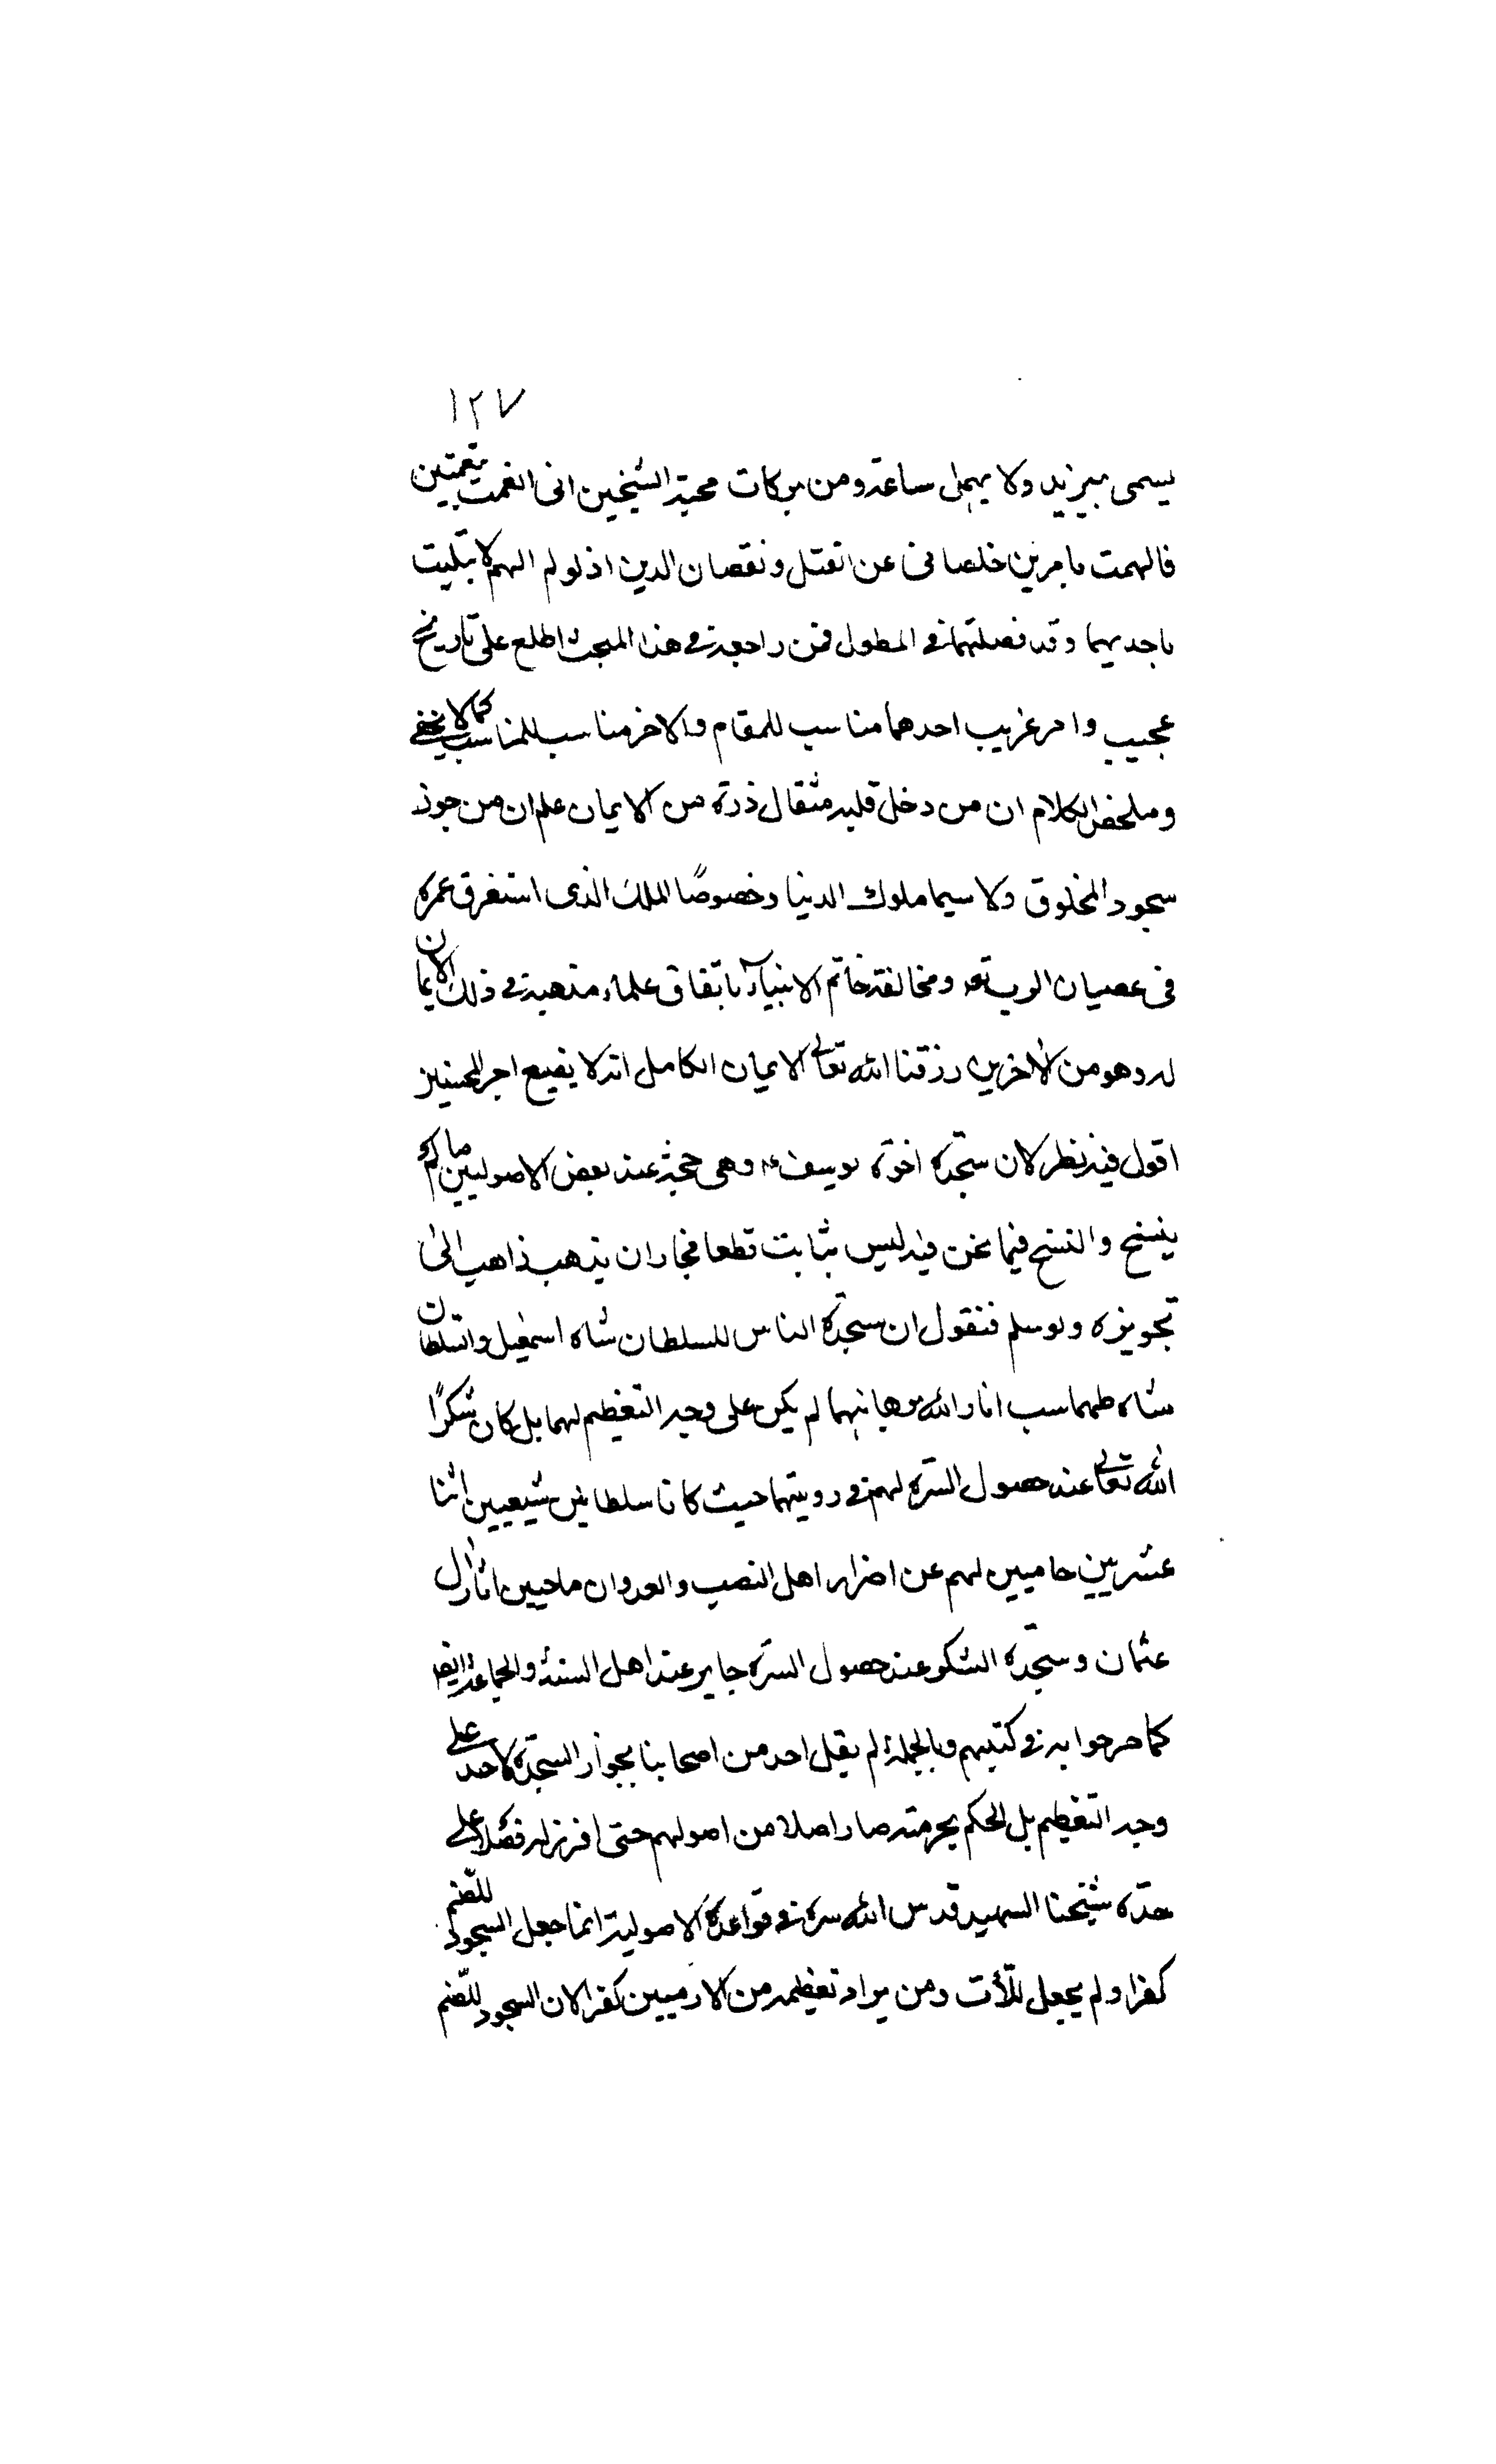 ١٢٧
يسمى بيزيد ولا يمهل ساعة ومن بركات محبة الشيخين انى انعمت بنعمتين
فالهمت بامرين خلصانى عن القتل ونقصان الدين اذ لو لم الهم لابتليت
باحديهما وقد فصلتهما فى المطول فمن راجعه فى هذا المبحث اطلع على تاريخ
عجيب وامر غريب احدهما مناسب للمقام والاخر مناسب للمناسب كما لا يخفى
وملخص الكلام ان من دخل قلبه مثقال ذرة من الايمان علم ان من جوز
سجود المخلوق ولا سيما ملوك الدنيا وخصوصًا الملك الذى استغرق عمره
فى عصيان الرب تعه ومخالفة خاتم الانبيآء باتفاق علماء مذهبه فى ذلك لا ايمان
له وهو من الاخرين رزقنا الله تعالى الايمان الكامل انه لا يضيع اجر المحسنين
اقول فيه نظر لان سجدة اخوة يوسف ع وهى حجة عند بعض الاصوليين ما لم
ينسخ والنسخ فيما نحن فيه ليس بثابت قطعا فجاز ان يذهب ذاهب الى
تجويزه ولو سلم فنقول ان سجدة الناس للسلطان شاه اسمعيل والسلطان
شاه طهماسب انار الله برهانهما لم يكن على وجه التعظيم لهما بل كان شكرًا
لله تعالى عند حصول المسرة لهم فى رويتهما حيث كانا سلطانين شيعيين اثنا
عشريين حاميين لهم عن اضرار اهل النصب والعدوان ماحيين اثار ال
عثمان وسجدة الشكر عند حصول المسرة جايز عند اهل السنة والجماعة ايضا
كما صرحوا به فى كتبهم وبالجملة لم يقل احد من اصحابنا بجواز السجدة لاحد على
وجه التعظيم بل الحكم بحرمته صار اصلا من اصولهم حتى افرز له فصلا على
حدة شيخنا الشهيد قدس الله سره فى قواعده الاصولية انما جعل السجود للصنم
كفرا ولم يجعل للأب ومن يراد تعظيمه من الادميين كفرا لان السجود للصنم